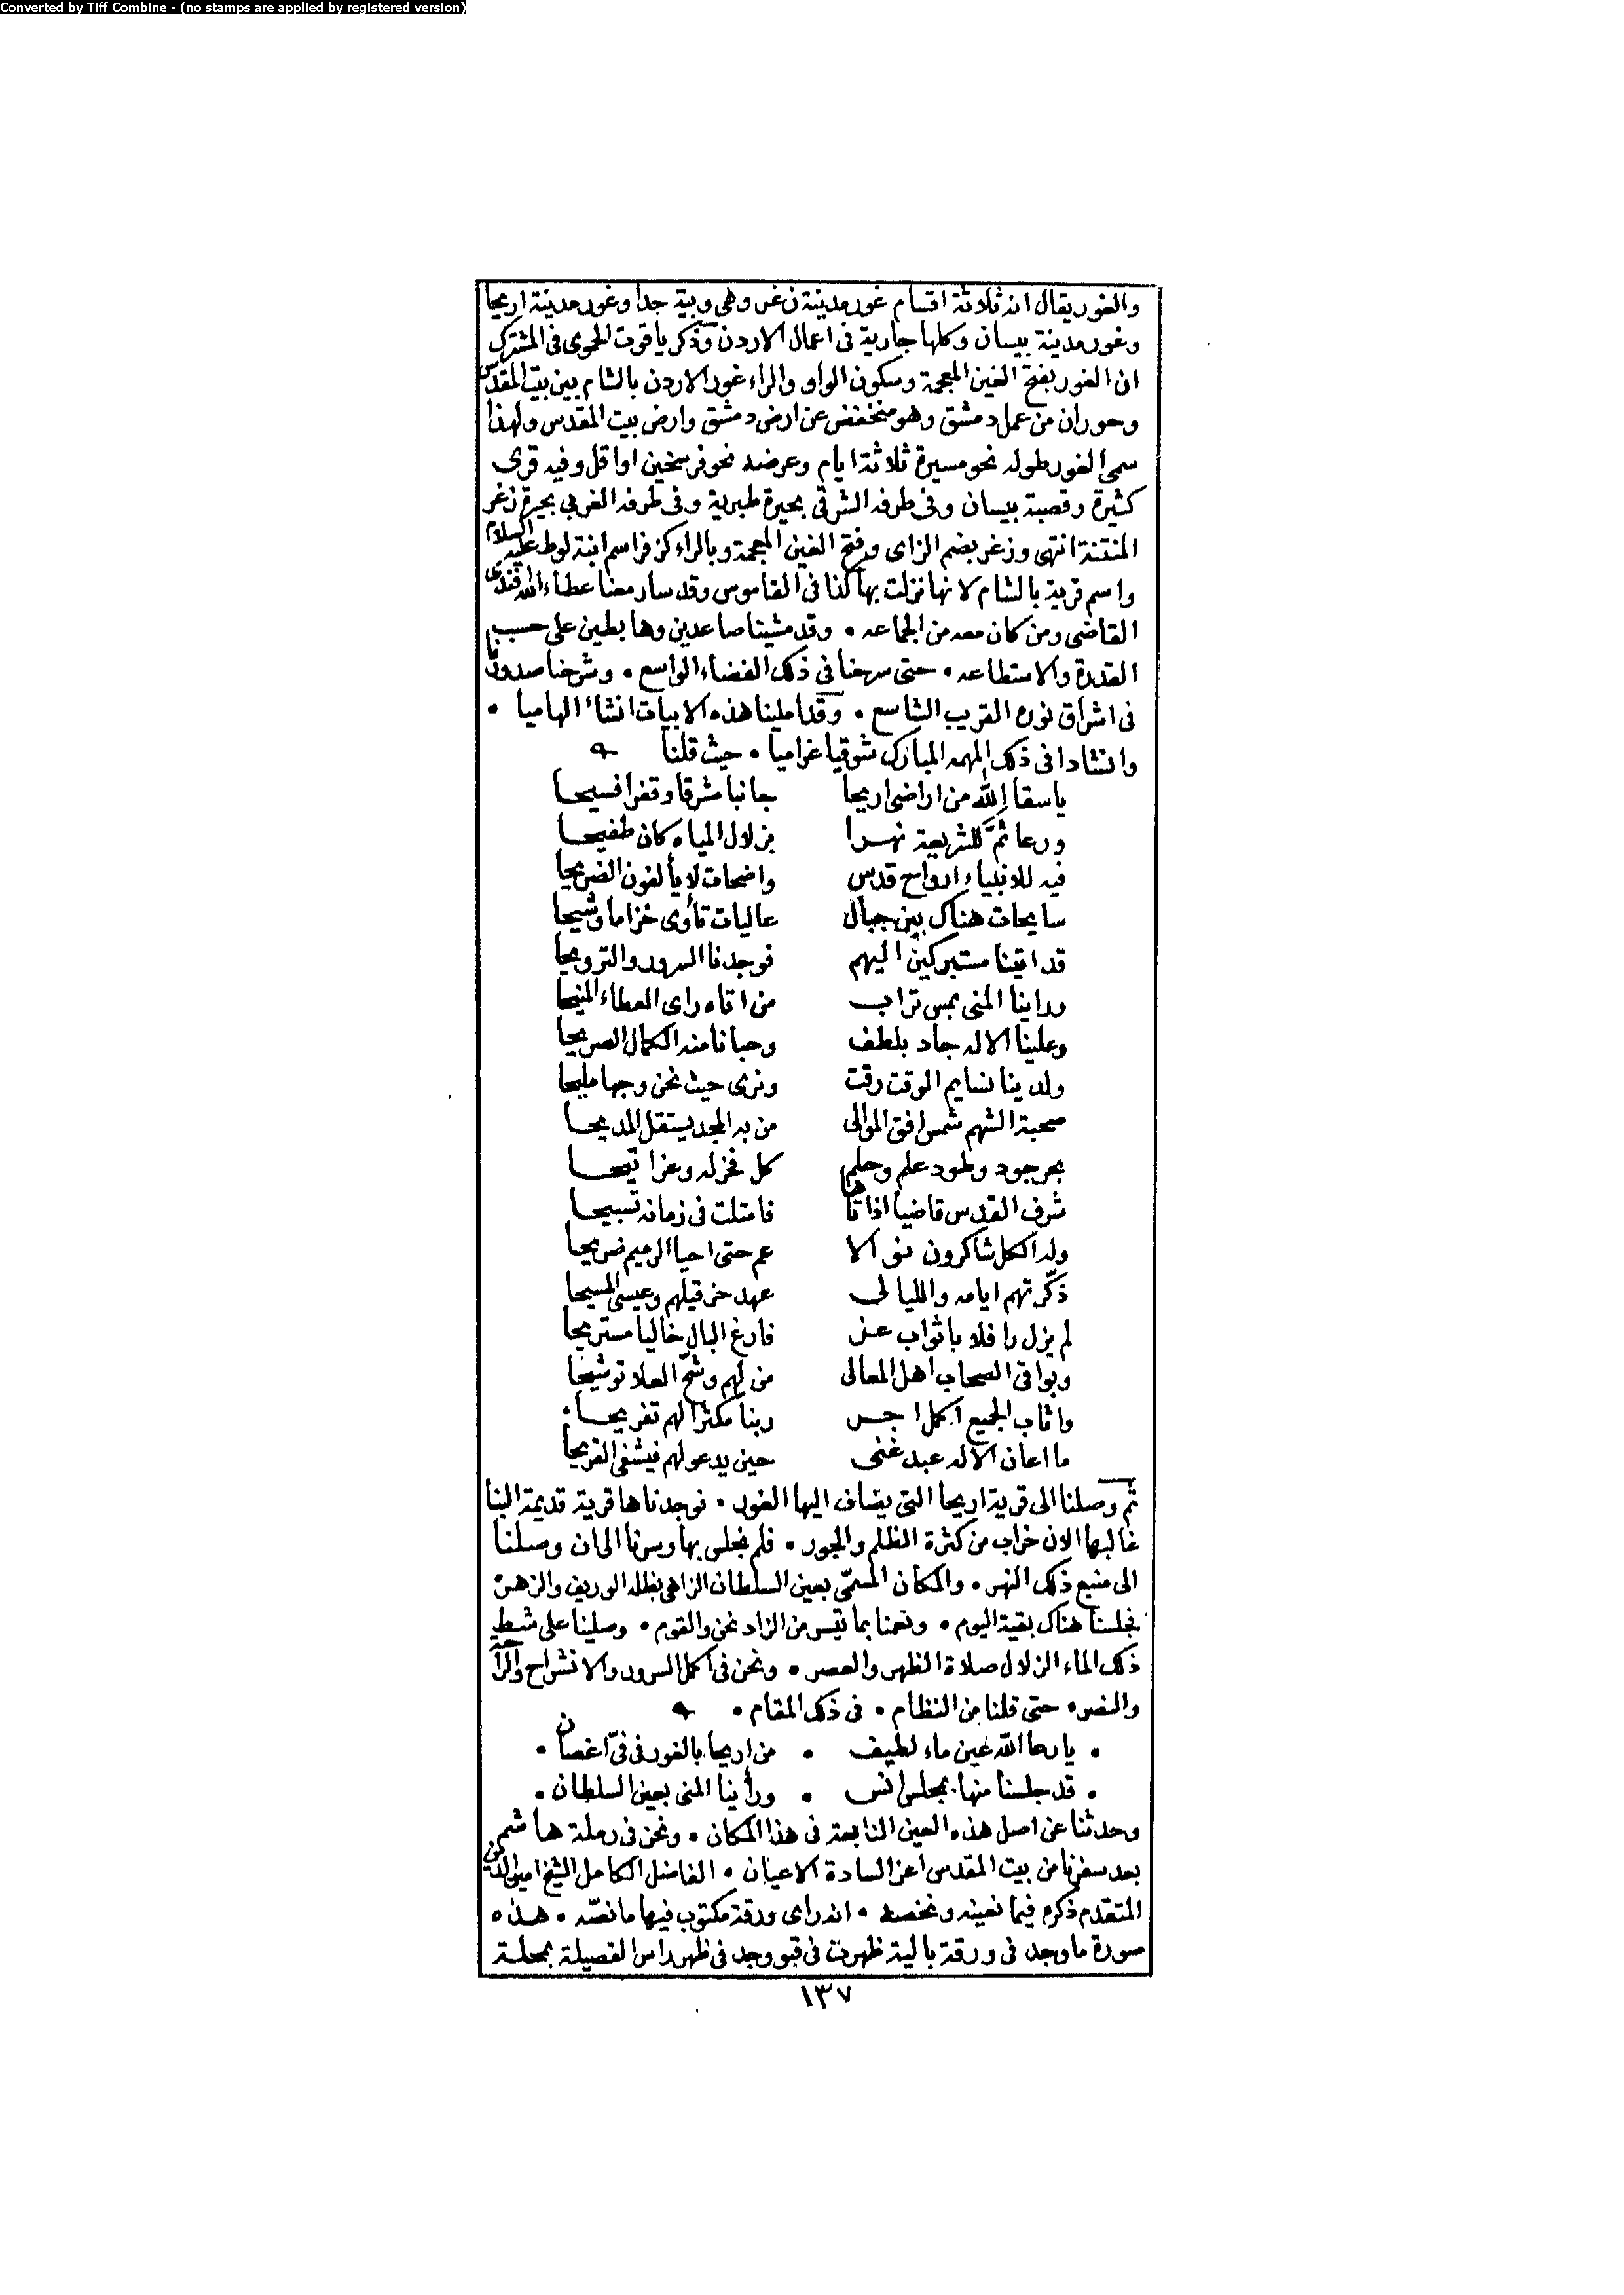 Converted by Tiff Combine - (no stamps are applied by registered version)
والغور يقال انه ثلاثة اقسام غور مدينة زغر وهي وبية جدا وغور مدينة اريحا
وغور مدينة بيسان وكلها جارية فى اعمال الاردن وذكر ياقوت الحموى فى المشترك
ان الغور بفتح الغين المعجمة وسكون الواو والراء غور الاردن بالشام بين بيت المقدس
وحوران من عمل دمشق وهو منخفض عن ارض دمشق وارض بيت المقدس ولهذا
سمى الغور طوله نحو مسيرة ثلاثة ايام وعرضه نحو فرسخين او اقل وفيه قرى
كثيرة وقصبة بيسان وفى طرفه الشرقى بحيرة طبرية وفى طرفه الغربي بحيرة زغر
المنتنة انتهى وزغر بضم الزاى وفتح الغين المعجمة وبالراء كزفر اسم ابنة لوط عليه السلام
واسم قرية بالشام لانها نزلت بها كذا فى القاموس وقد سار معنا عطاء الله افندى
القاضى ومن كان معه من الجماعه • وقد مشينا صاعدين وهابطين على حسب
القدرة والاستطاعه • حتى سرحنا فى ذلك الفضاء الواسع • وشرحنا صدورنا
فى اشراق نوره القريب الشاسع • وقد املينا هذه الابيات انشاء الهاميا •
وانشادا فى ذلك المهمه المبارك شوقيا غراميا • حيث قلنا
ياسقا الله من اراضى اريحا جانبا مشرقا وقفرا فسيحا
ورعا ثَمَّ للشريعة نهرا بزلال المياه كان طفيحا
فيه للانبياء ارواح قدس واضحات لا يألفون الضريحا
سايحات هناك بين جبال عاليات تأوى خزاما وشيحا
قد اتينا مستبركين اليهم فوجدنا السرور والترويحا
وراينا المنى بمس تراب من اتاه راى العطاء المنيحا
وعلينا الاله جاد بلطف وحبانا منه الكمال الصريحا
ولدينا نسايم الوقت رقت ونرى حيث نحن وجها مليحا
صحبة الشهم شمس افق الموالى من به المجد يستقل المديحا
بحر جود وطود علم وحلم كل فخر له وعزا تيحا
شرف القدس قاضيا اذ اتاها فامتلت فى زمانه تسبيحا
وله الكل شاكرون نوالا عم حتى احيا الرميم ضريحا
ذكّرتهم ايامه والليالى عهد حزقيلهم وعيسى المسيحا
لم يزل رافلا باثواب عز فارغ البال خاليا مستريحا
وبواقى الصحاب اهل المعالى من لهم وشّح العلا توشيحا
واثاب الجميع اكمل اجر ربنا مكثرا لهم تفريحا
ما اعان الاله عبد غنى حين يدعو لهم فيشفى القريحا
ثم وصلنا الى قرية اريحا التى يضاف اليها الغور • فوجدناها قرية قديمة البنا
غالبها الان خراب من كثرة الظلم والجور • فلم نجلس بها وسرنا الى ان وصلنا
الى منبع ذلك النهر • والمكان المسمّى بعين السلطان الزاهى بظله الوريف والزهر
فجلسنا هناك بقية اليوم • ونعمنا بما تيسر من الزاد نحن والقوم • وصلينا على شط
ذلك الماء الزلال صلاة الظهر والعصر • ونحن فى اكمل السرور والانشراح والراحة
والنصر • حتى قلنا من النظام • فى ذلك المقام •
• يا رعا الله عين ماء لطيف • من اريحا بالغور فى فىّ اغصان •
• قد جلسنا منها بمجلس انس • ورأينا المنى بعين السلطان •
وحدثنا عن اصل هذه العين النابعة فى هذا المكان • ونحن فى رملة هاشم
بعد سفرنا من بيت المقدس اعز السادة الاعيان • الفاضل الكامل الشيخ امين الدين
المتقدم ذكره فيما نعينه ونخصه • انه راى ورقة مكتوب فيها ما نصّه • هذه
صورة ما وجد فى ورقة بالية ظهرت فى قبو وجد فى ظهر راس القصيلة بمحلة
١٣٧